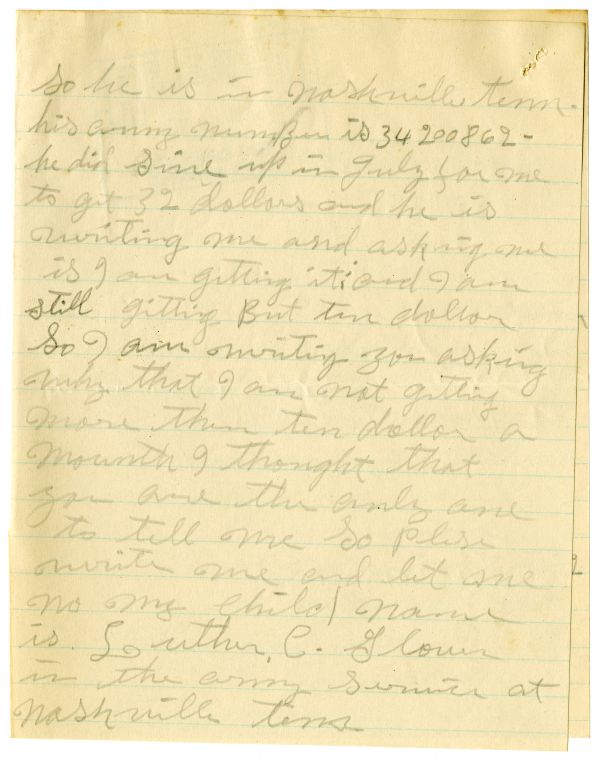 So he is in nashville, tenn.
his army number is 34200862-
he did sine up in July for me
to git 32 dollars and he is
writing me and asking me
is I am getting it: and I am
still gitting But ten dollar
So I am writig you asking
why that I am not gitting
more then ten dollar a
mounth I thought that
you are the only one
to tell me So plese
write me and let me
no my child name
is Luther, C. Glover
in the army service at
nashville tenn